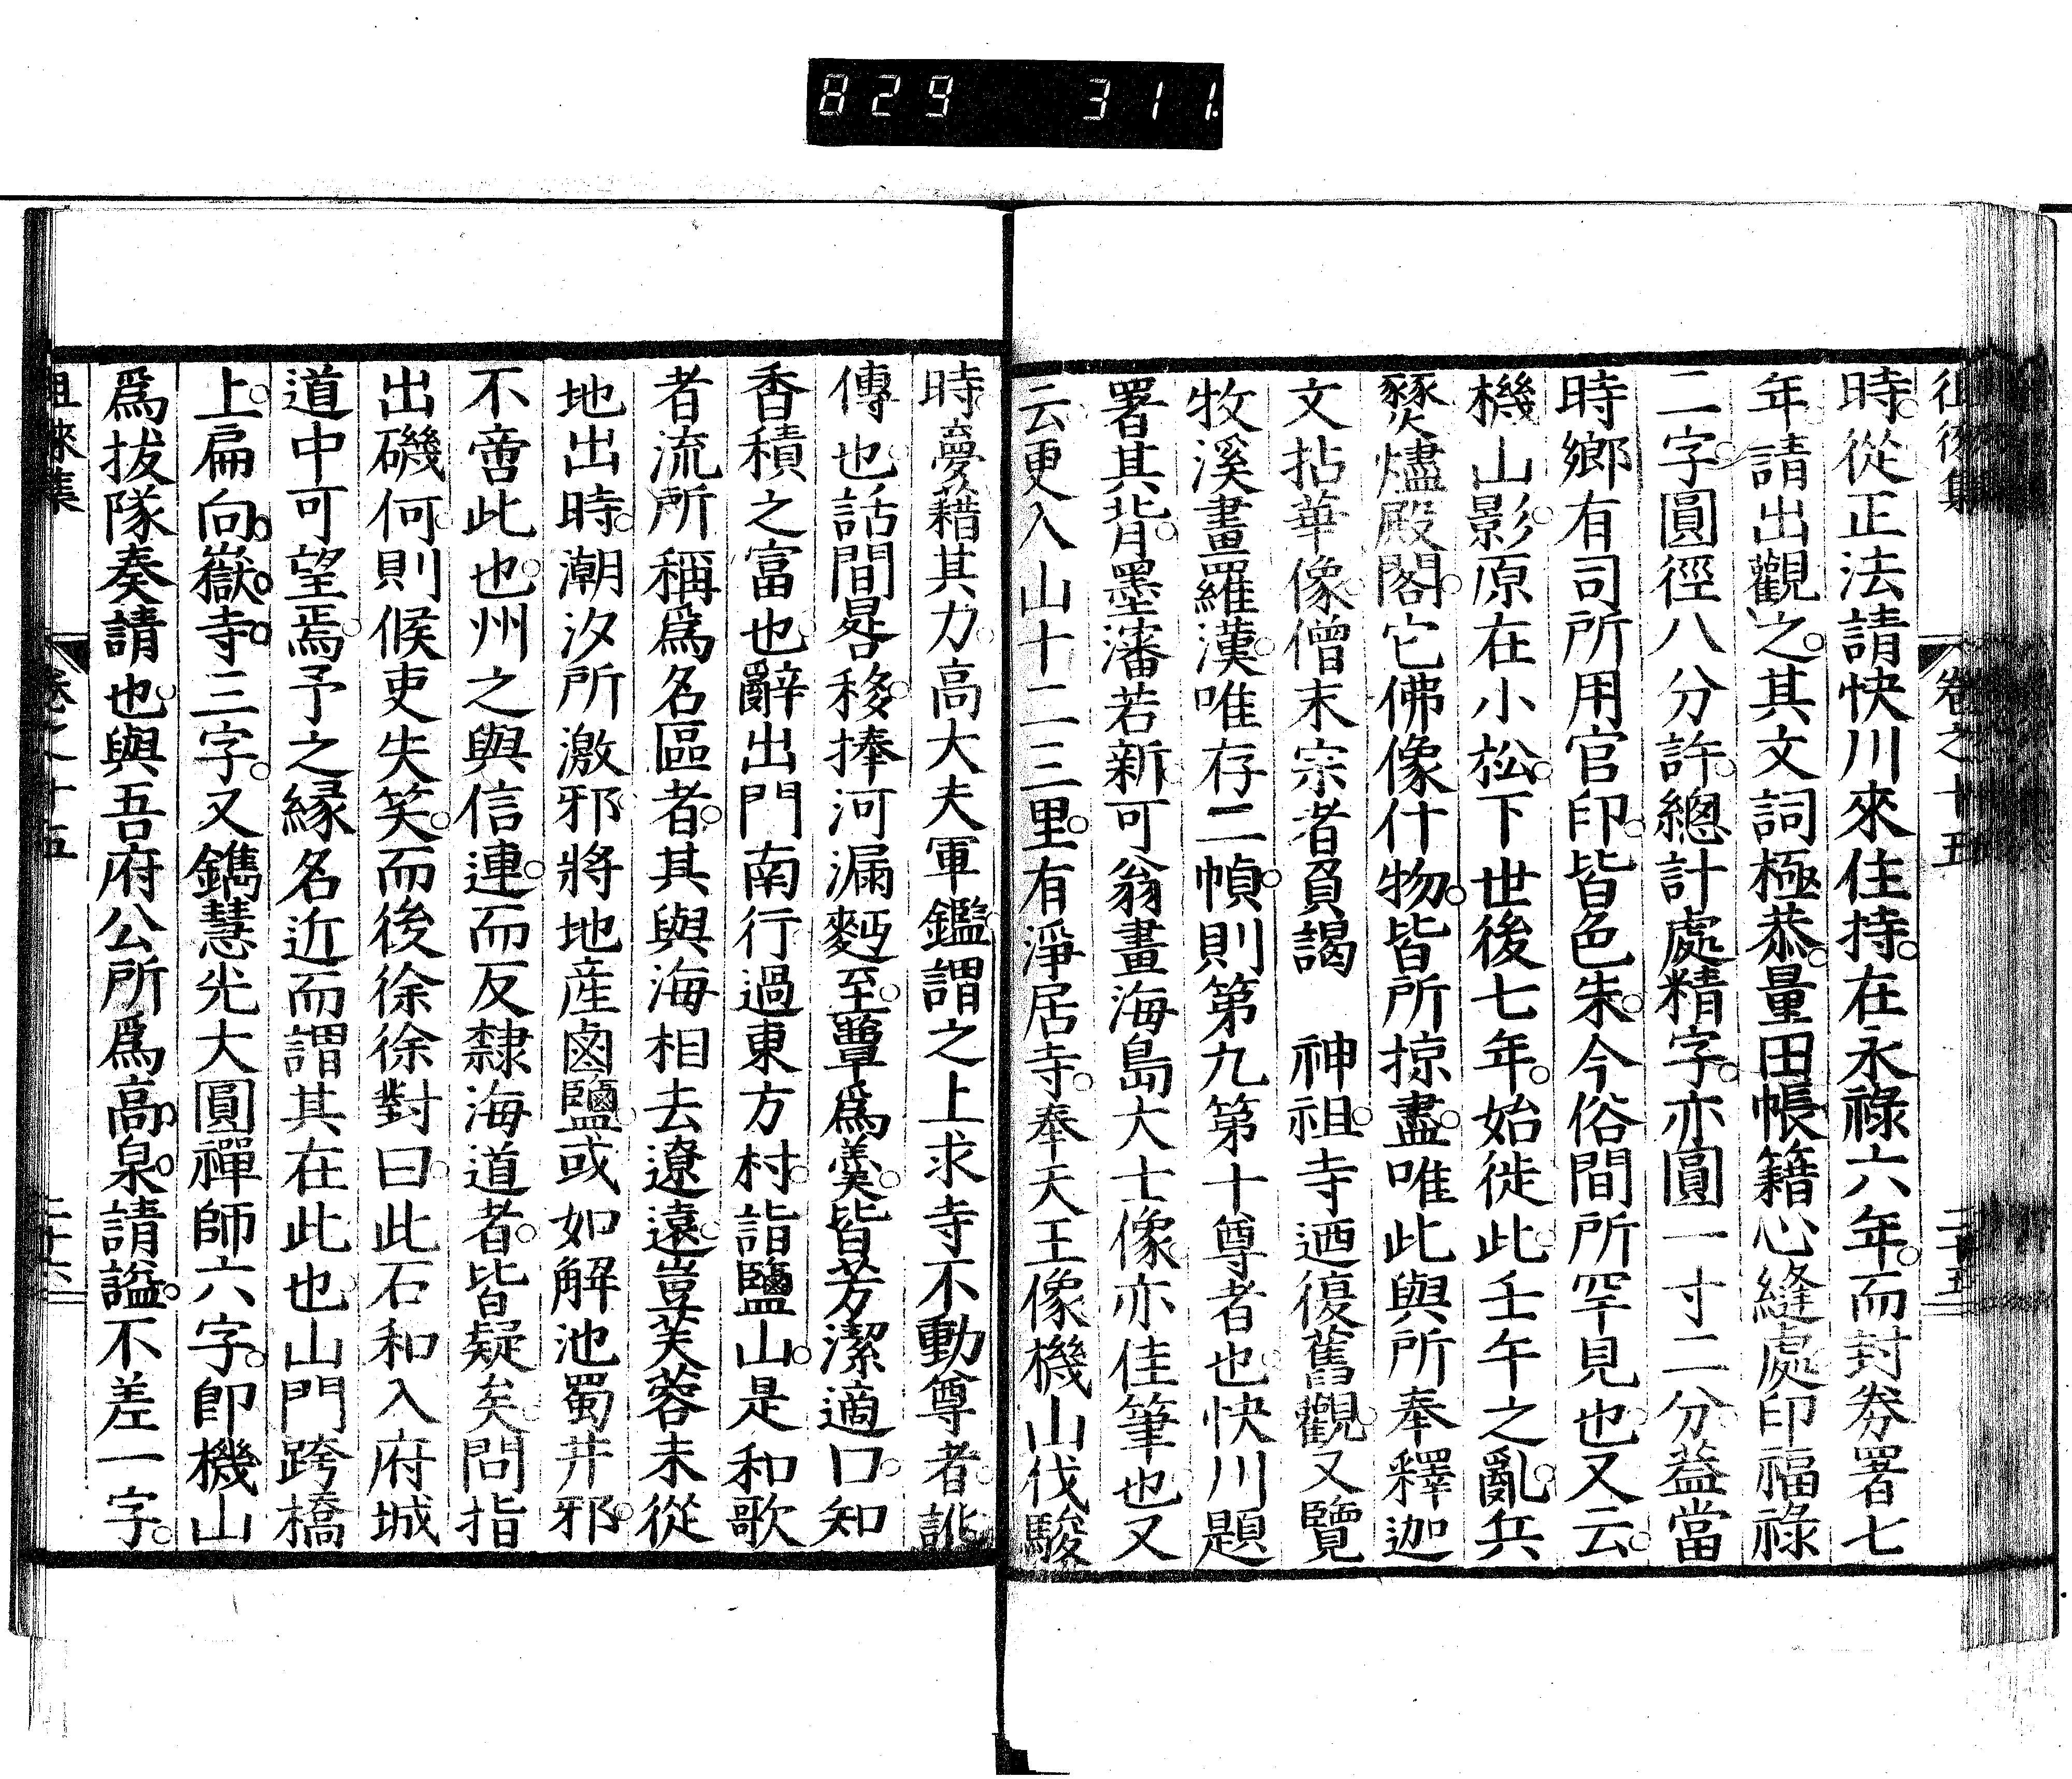 829 311
徂徠集 卷之十五 二十五
時從正法請快川來住持在永祿六年而封券署七
年請出觀之其文詞極恭量田帳籍心縫處印福祿
二字圓徑八分許總計處精字亦圓一寸二分葢當
時鄉有司所用官印皆色朱今俗間所罕見也又云
機山影原在小松下世後七年始徙此壬午之亂兵
燹燼殿閣它佛像什物皆所掠盡唯此與所奉釋迦
文拈華像僧末宗者負謁 神祖寺迺復舊觀又覽
牧溪畫羅漢唯存二幀則第九第十尊者也快川題
署其背墨瀋若新可翁畫海島大士像亦佳筆也又
云更入山十二三里有淨居寺奉天王像機山伐駿
時夢藉其力高大夫軍鑑謂之上求寺不動尊者訛
傳也話間晷移捧河漏麪至蕈爲羹皆芳潔適口知
香積之富也辭出門南行過東方村詣鹽山是和歌
者流所稱爲名區者其與海相去遼遠豈芙蓉未從
地出時潮汐所激邪將地産鹵鹽或如解池蜀井邪
不啻此也州之與信連而反隸海道者皆疑矣問指
出磯何則候吏失笑而後徐徐對曰此石和入府城
道中可望焉予之緣名近而謂其在此也山門跨橋
上扁向嶽寺三字又鐫慧光大圓禪師六字卽機山
爲拔隊奏請也與吾府公所爲高泉請謚不差一字
徂徠集 卷之十五 二十六